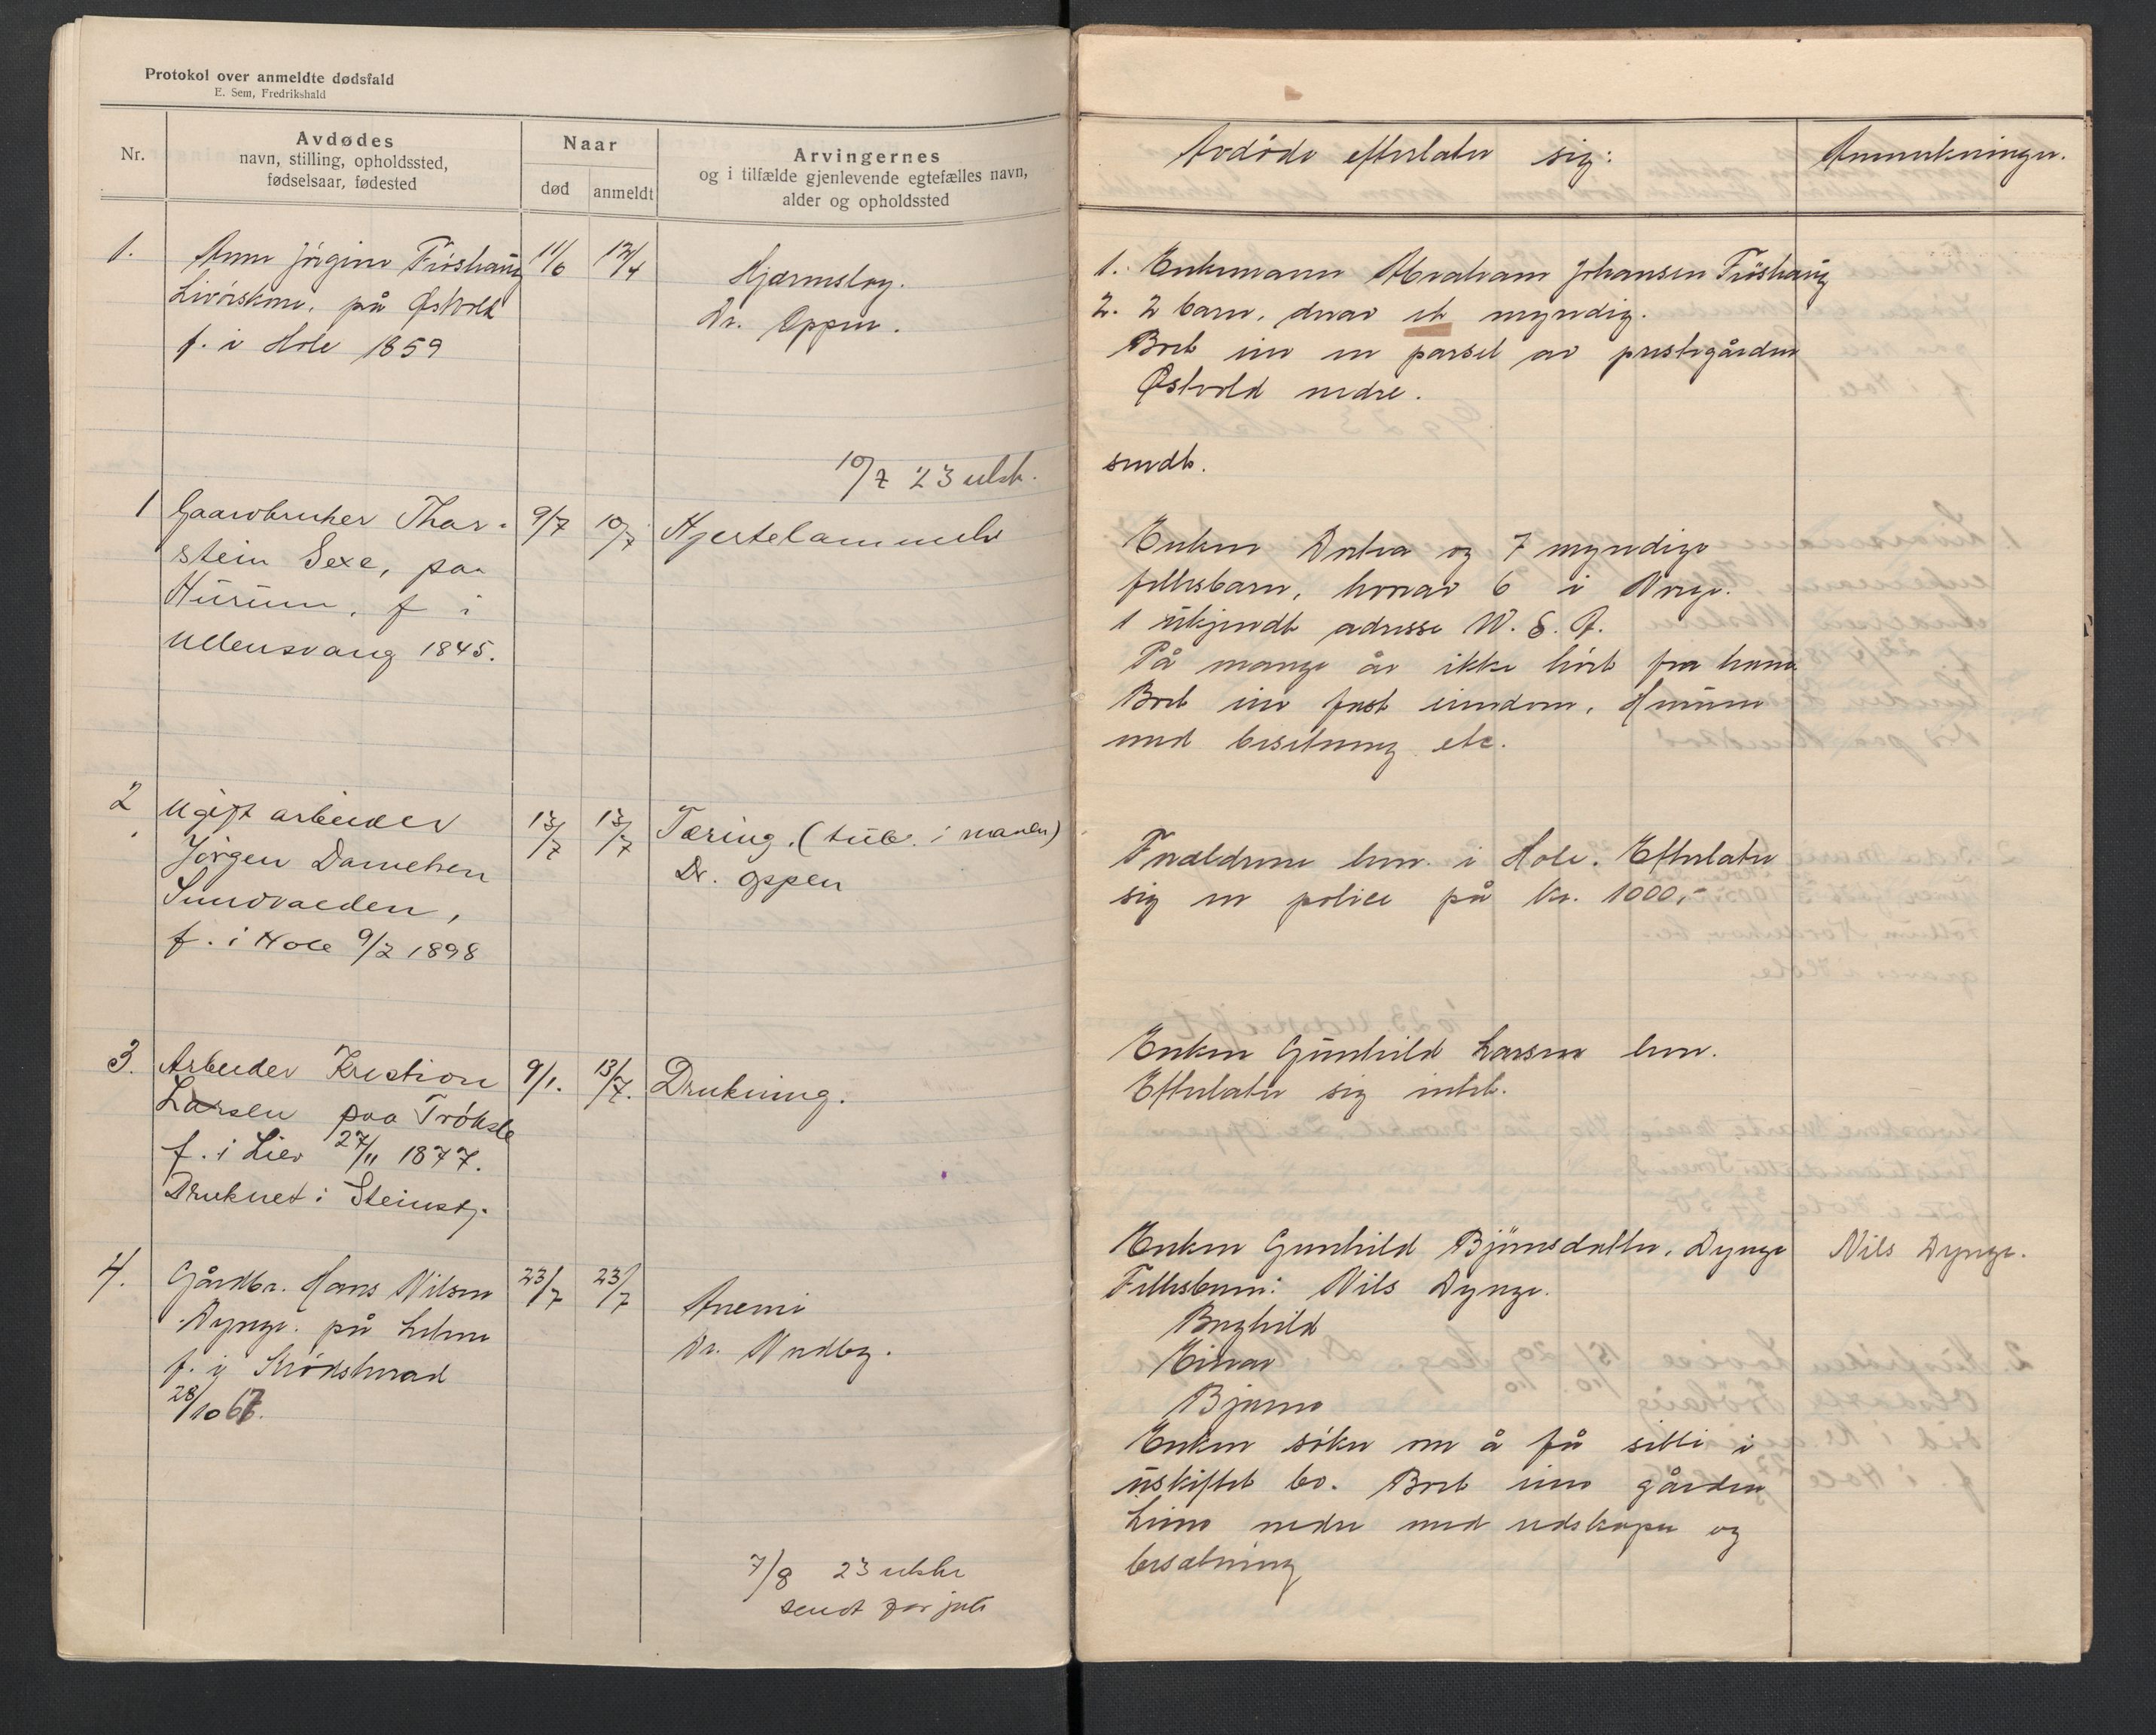 Protokol over anmeldte dødsfald
E. Sem, Fredrikshald
Nr.
Avdødes
navn, stilling, opholdssted,
fødselsaar, fødested
Naar
død
anmeldt
Arvingernes
og i tilfælde gjenlevende egtefælles navn,
alder og opholdssted
1.
Anne Jörgine Fröshaug
Livörskone, på Østvold
f. i Hole 1859
11/6
12/4
Hjærneslag.
Dr. Oppen.
10/7 23 utsk.
1
Gaardbruker Thor-
stein Sexe, paa
Hurum, f i
Ullensvang 1845.
9/7
10/7
Hjertelammelse
2
Ugift arbeider
Jörgen Danielsen
Sundvolden,
f. i Hole 9/2 1898
13/7
13/7
Tæring. (tub. i maven)
Dr. Oppen
3.
Arbeider Kristian
Larsen paa Trögsle
f. i Lier 27/11 1877.
Druknet i Steinsfj.
9/1.
13/7.
Drukning.
4.
Gårdbr. Hans Nilsen
Dynge. på Lehne
f. i Krödsherad
28/10 67.
23/7
23/7
Anemi
Dr. Nedby.
7/8 23 utskr
sendt for juli
Avdöde efterlater sig:
Anmerkninger.
1. Enkemann Abraham Johansen Fröshaug
2. 2 barn, derav et myndig.
Boet eier en parsel av prestegården
Østvold nedre.
sendt.
Enken Dortea og 7 myndige
fellesbarn, hvorav 6 i Norge.
1 ukjendt adresse U. S. A.
På mange år ikke hört fra ham.
Boet eier fast eiendom, Hurum
med besetning etc.
Foreldrene lever i Hole. Efterlater
sig en police på kr. 1000,-
Enken Gunhild Larsen lever.
Efterlater sig intet.
Enken Gunhild Björnsdatter, Dynge
Nils Dynge.
Fellesbarn: Nils Dynge.
Borghild
Einar
Bjarne
Enken söker om å få sitte i
uskiftet bo. Boet eier gården
Leine nedre med redskaper og
besætning